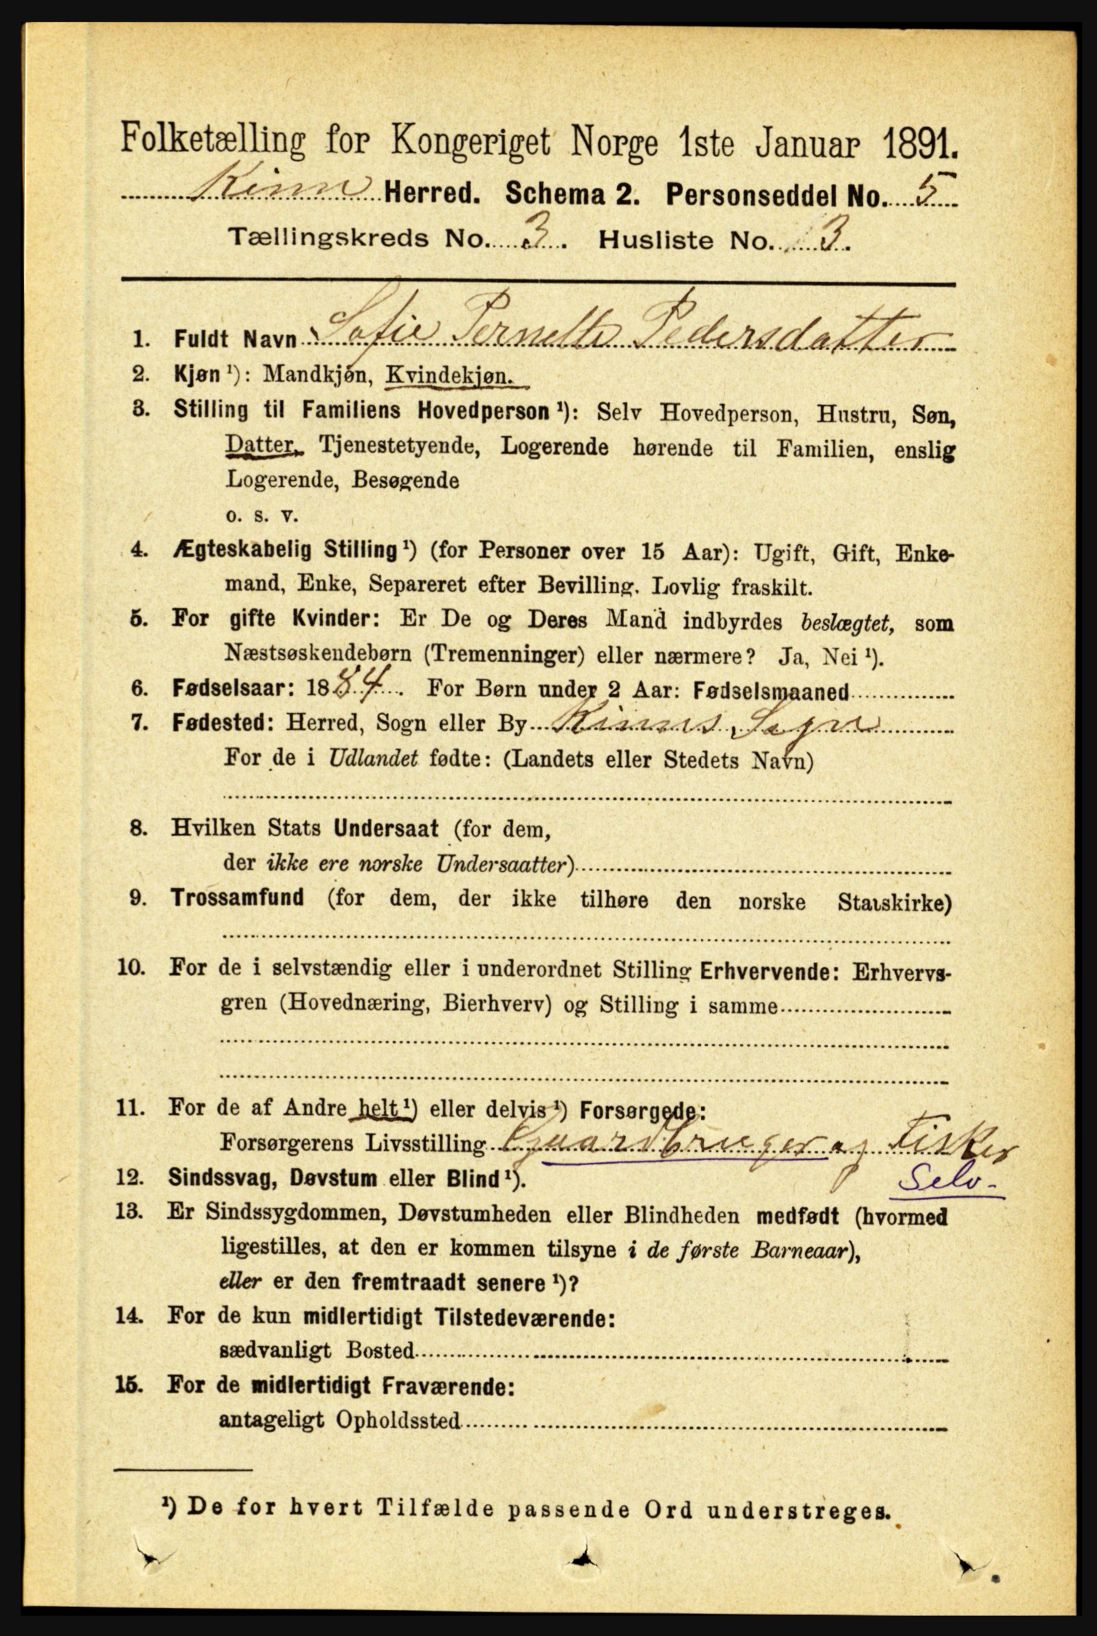 Folketælling for Kongeriget Norge 1ste Januar 1891.
Kinn Herred. Schema 2. Personseddel No. 5
Tællingskreds No. 3. Husliste No. 3.
1. Fuldt Navn Sofie Pernelle Pedersdatter
2. Kjøn ¹): Mandkjøn, Kvindekjøn.
3. Stilling til Familiens Hovedperson ¹): Selv Hovedperson, Hustru, Søn,
Datter, Tjenestetyende, Logerende hørende til Familien, enslig
Logerende, Besøgende
o. s. v.
4. Ægteskabelig Stilling ¹) (for Personer over 15 Aar): Ugift, Gift, Enke-
mand, Enke, Separeret efter Bevilling. Lovlig fraskilt.
5. For gifte Kvinder: Er De og Deres Mand indbyrdes beslægtet, som
Næstsøskendebørn (Tremenninger) eller nærmere? Ja, Nei ¹).
6. Fødselsaar: 1884. For Børn under 2 Aar: Fødselsmaaned
7. Fødested: Herred, Sogn eller By Kinns Sogn
For de i Udlandet fødte: (Landets eller Stedets Navn)
8. Hvilken Stats Undersaat (for dem,
der ikke ere norske Undersaatter)
9. Trossamfund (for dem, der ikke tilhøre den norske Statskirke)
10. For de i selvstændig eller i underordnet Stilling Erhvervende: Erhvervs-
gren (Hovednæring, Bierhverv) og Stilling i samme
11. For de af Andre helt ¹) eller delvis ¹) Forsørgede:
Forsørgerens Livsstilling Gaardbruger og Fisker
12. Sindssvag, Døvstum eller Blind ¹). Selv.
13. Er Sindssygdommen, Døvstumheden eller Blindheden medfødt (hvormed
ligestilles, at den er kommen tilsyne i de første Barneaar),
eller er den fremtraadt senere ¹)?
14. For de kun midlertidigt Tilstedeværende:
sædvanligt Bosted
15. For de midlertidigt Fraværende:
antageligt Opholdssted
¹) De for hvert Tilfælde passende Ord understreges.